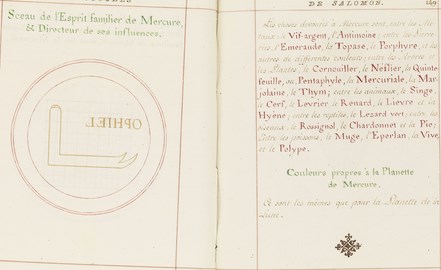 Sceau de l'Esprit familier de Mercure,
& Directeur de ses influences.
OPHIEL
DE SALOMON.
Les choses donnés à Mercure sont, entre les
le Vif-argent, l'Antimoine; entre les
l'Emeraude, la Topase, le Porphyre, et les
autres de différentes couleurs; entre les Arbres et
les Plantes, le Cornouiller, le Néflier, la Quinte-
feuille, ou Pentaphyle, la Mercuriale, la Mar-
jolaine, le Thym; entre les animaux, le Singe,
le Cerf, le Levrier, le Renard, le Lievre et la
Hyène; entre les reptiles, le Lezard vert; entre les
oiseaux, le Rossignol, le Chardonnet et la Pie;
Entre les poissons, le Muge, l'Eperlan, la Vive,
et le Polype.
Couleurs propres à la Planette
de Mercure.
Ce sont les mêmes que pour la Planette de la
Lune.